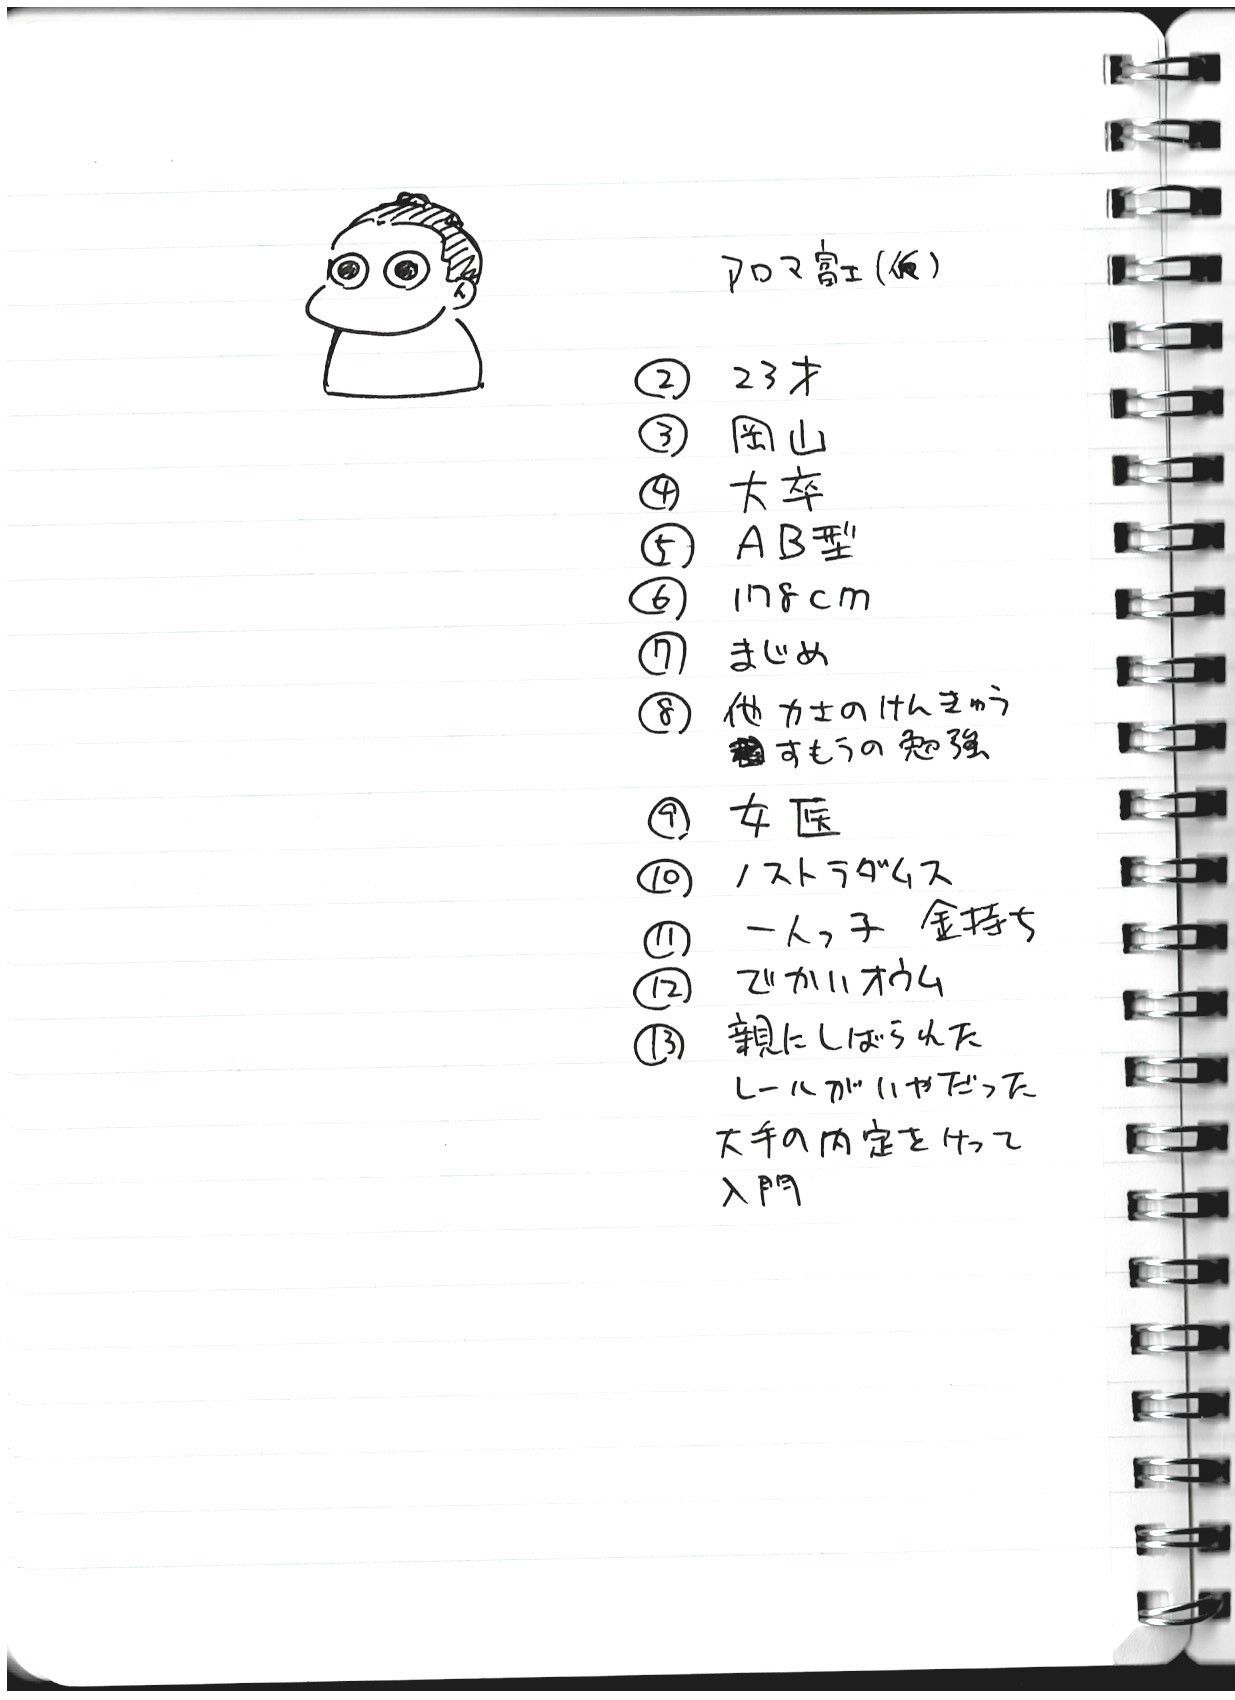 アロマ富士(仮)
② 23才
③ 岡山
④ 大卒
⑤ AB型
⑥ 178cm
⑦ まじめ
⑧ 他力士のけんきゅう
すもうの勉強
⑨ 女医
⑩ ノストラダムス
⑪ 一人っ子 金持ち
⑫ でかいオウム
⑬ 親にしばられた
レールがいやだった
大手の内定をけって
入門